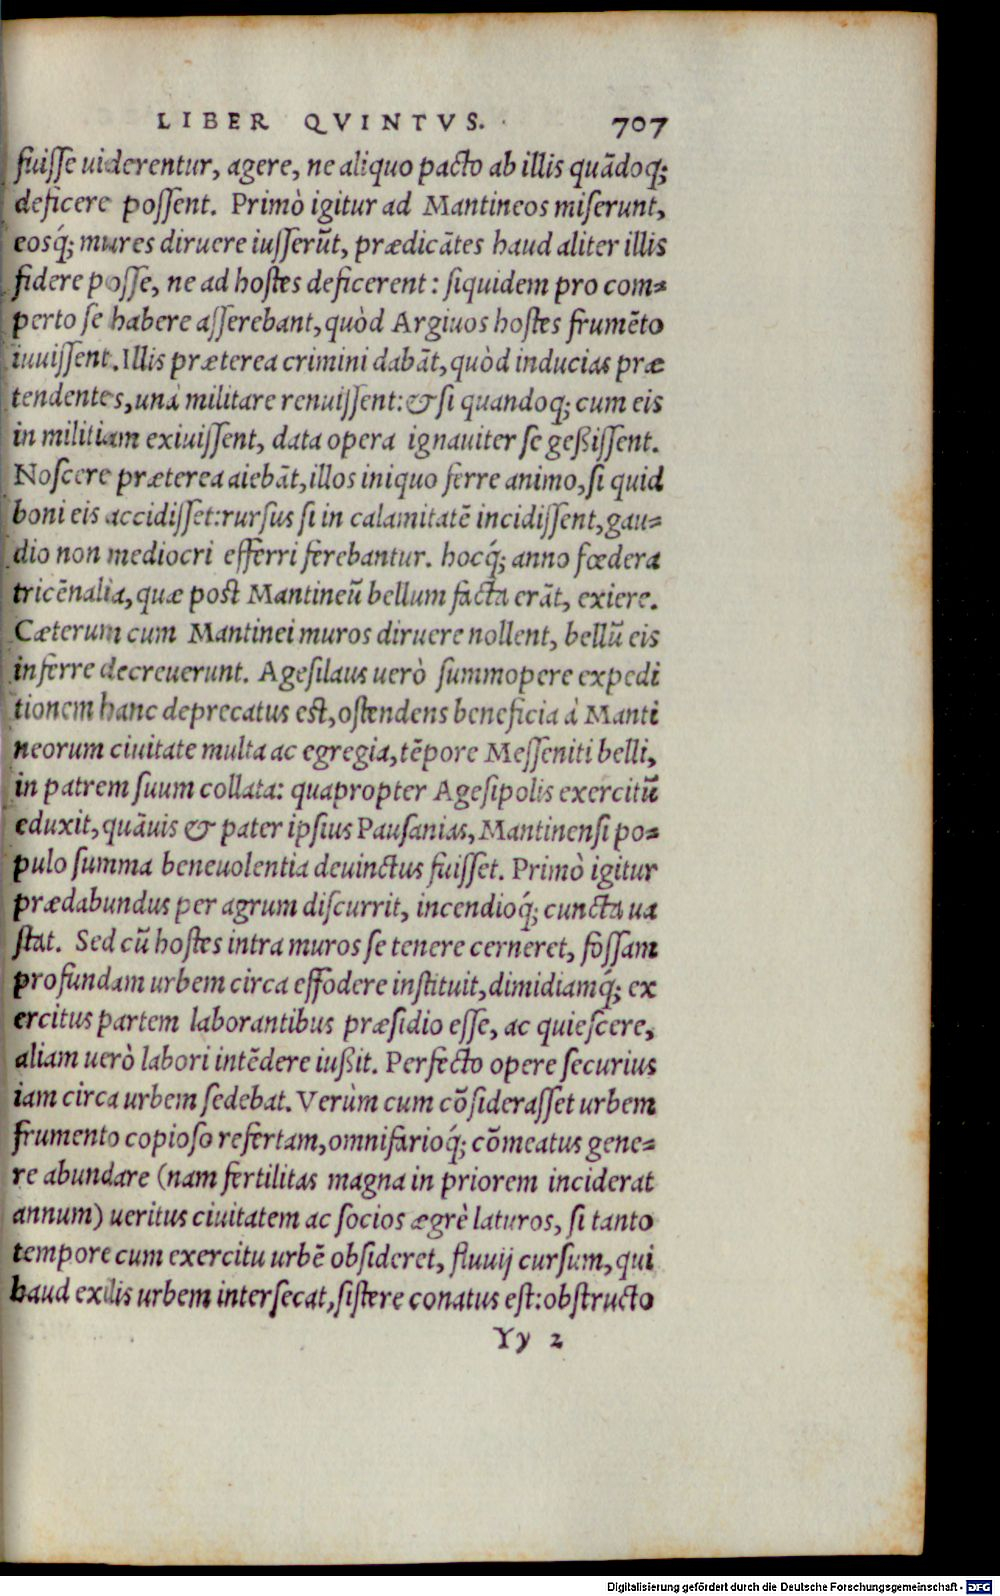 LIBER QVINTVS. 707
fuisse uiderentur, agere, ne aliquo pacto ab illis quãdoq;
deficere possent. Primò igitur ad Mantineos miserunt,
eosq́; mures diruere iusserũt, prædicãtes haud aliter illis
fidere posse, ne ad hostes deficerent: siquidem pro com-
perto se habere asserebant, quòd Argiuos hostes frumẽto
iuuissent. Illis præterea crimini dabãt, quòd inducias præ
tendentes, unà militare renuissent: & si quandoq; cum eis
in militiam exiuissent, data opera ignauiter se geßissent.
Noscere præterea aiebãt, illos iniquo ferre animo, si quid
boni eis accidisset: rursus si in calamitatẽ incidissent, gau-
dio non mediocri efferri ferebantur. hocq́; anno fœdera
tricẽnalia, quæ post Mantineũ bellum facta erãt, exiere.
Cæterum cum Mantinei muros diruere nollent, bellũ eis
inferre decreuerunt. Agesilaus uerò summopere expedi
tionem hanc deprecatus est, ostendens beneficia à Manti
neorum ciuitate multa ac egregia, tẽpore Messeniti belli,
in patrem suum collata: quapropter Agesipolis exercitũ
eduxit, quãuis & pater ipsius Pausanias, Mantinensi po-
pulo summa beneuolentia deuinctus fuisset. Primò igitur
prædabundus per agrum discurrit, incendioq́; cuncta ua
stat. Sed cũ hostes intra muros se tenere cerneret, fossam
profundam urbem circa effodere instituit, dimidiamq́; ex
ercitus partem laborantibus præsidio esse, ac quiescere,
aliam uerò labori intẽdere iußit. Perfecto opere securius
iam circa urbem sedebat. Verùm cum cõsiderasset urbem
frumento copioso refertam, omnifarioq́; cõmeatus gene-
re abundare (nam fertilitas magna in priorem inciderat
annum) ueritus ciuitatem ac socios ægrè laturos, si tanto
tempore cum exercitu urbẽ obsideret, fluuij cursum, qui
haud exilis urbem intersecat, sistere conatus est: obstructo
Yy 2
Digitalisierung gefördert durch die Deutsche Forschungsgemeinschaft - DFG